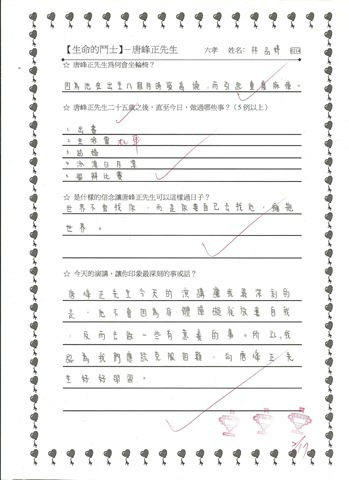 【生命的鬥士】－唐峰正先生 六孝 姓名：林品婷
☆ 唐峰正先生為何會坐輪椅？
因為他在出生八個月時發高燒，而引起重着麻痺。
☆ 唐峰正先生二十五歲之後，直至今日，做過哪些事？（5 例以上）
1. 出書
2. 生
3. 結婚
4. 泳渡日月潭
5. 舉辦比賽
☆ 是什樣的信念讓唐峰正先生可以這樣過日子？
世界不會找你，而是你要自己去找它，擁抱
世界。
☆ 今天的演講，讓你印象最深刻的事或話？
唐峰正先生今天的演講讓我最深刻的
是，他不會因為身體障礙而放棄自我
，反而去做一些有意義的事。所以我
認為我們應該克服困難，向唐峰正先
生好好學習。